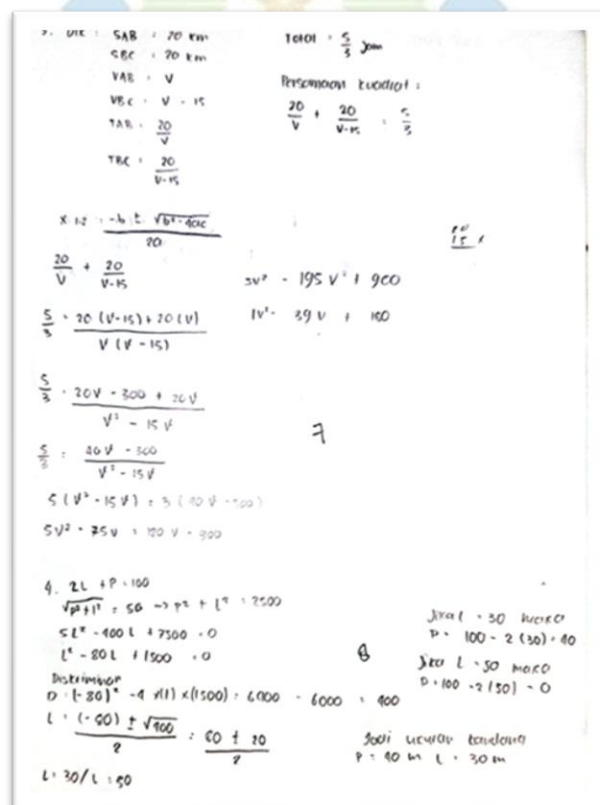 3. Dik : SAB : 20 km
SBC : 20 km
VAB : V
VBC : V - 15
TAB : 20/V
TBC : 20/V-15
Total : 5/3 jam
Persamaan kuadrat :
20/V + 20/V-15 : 5/3
x 1.2 : -b ± √b² - 4ac / 2a
20/V + 20/V-15
5/3 : 20 (V-15) + 20 (V) / V (V - 15)
5/3 : 20V - 300 + 20V / V² - 15V
5/3 : 40V - 300 / V² - 15V
5 (V² - 15V) : 3 (40V - 300)
5V² - 75V : 120V - 900
5V² - 195V + 900
1V² - 39V + 180
15 x
7
4. 2L + P = 100
√p²+l² = 50 -> p² + l² = 2500
5L² - 400L + 7500 = 0
L² - 80L + 1500 = 0
Diskriminan
D = (-80)² - 4 x(1) x(1500) = 6400 - 6000 = 400
L = (-80) ± √400 / 2 = 80 ± 20 / 2
L = 30 / L = 50
8
Jika L = 30 maka
P = 100 - 2 (30) = 40
Jika L = 50 maka
P = 100 - 2 (50) = 0
Jadi ukuran kandang
P = 40 m L = 30 m